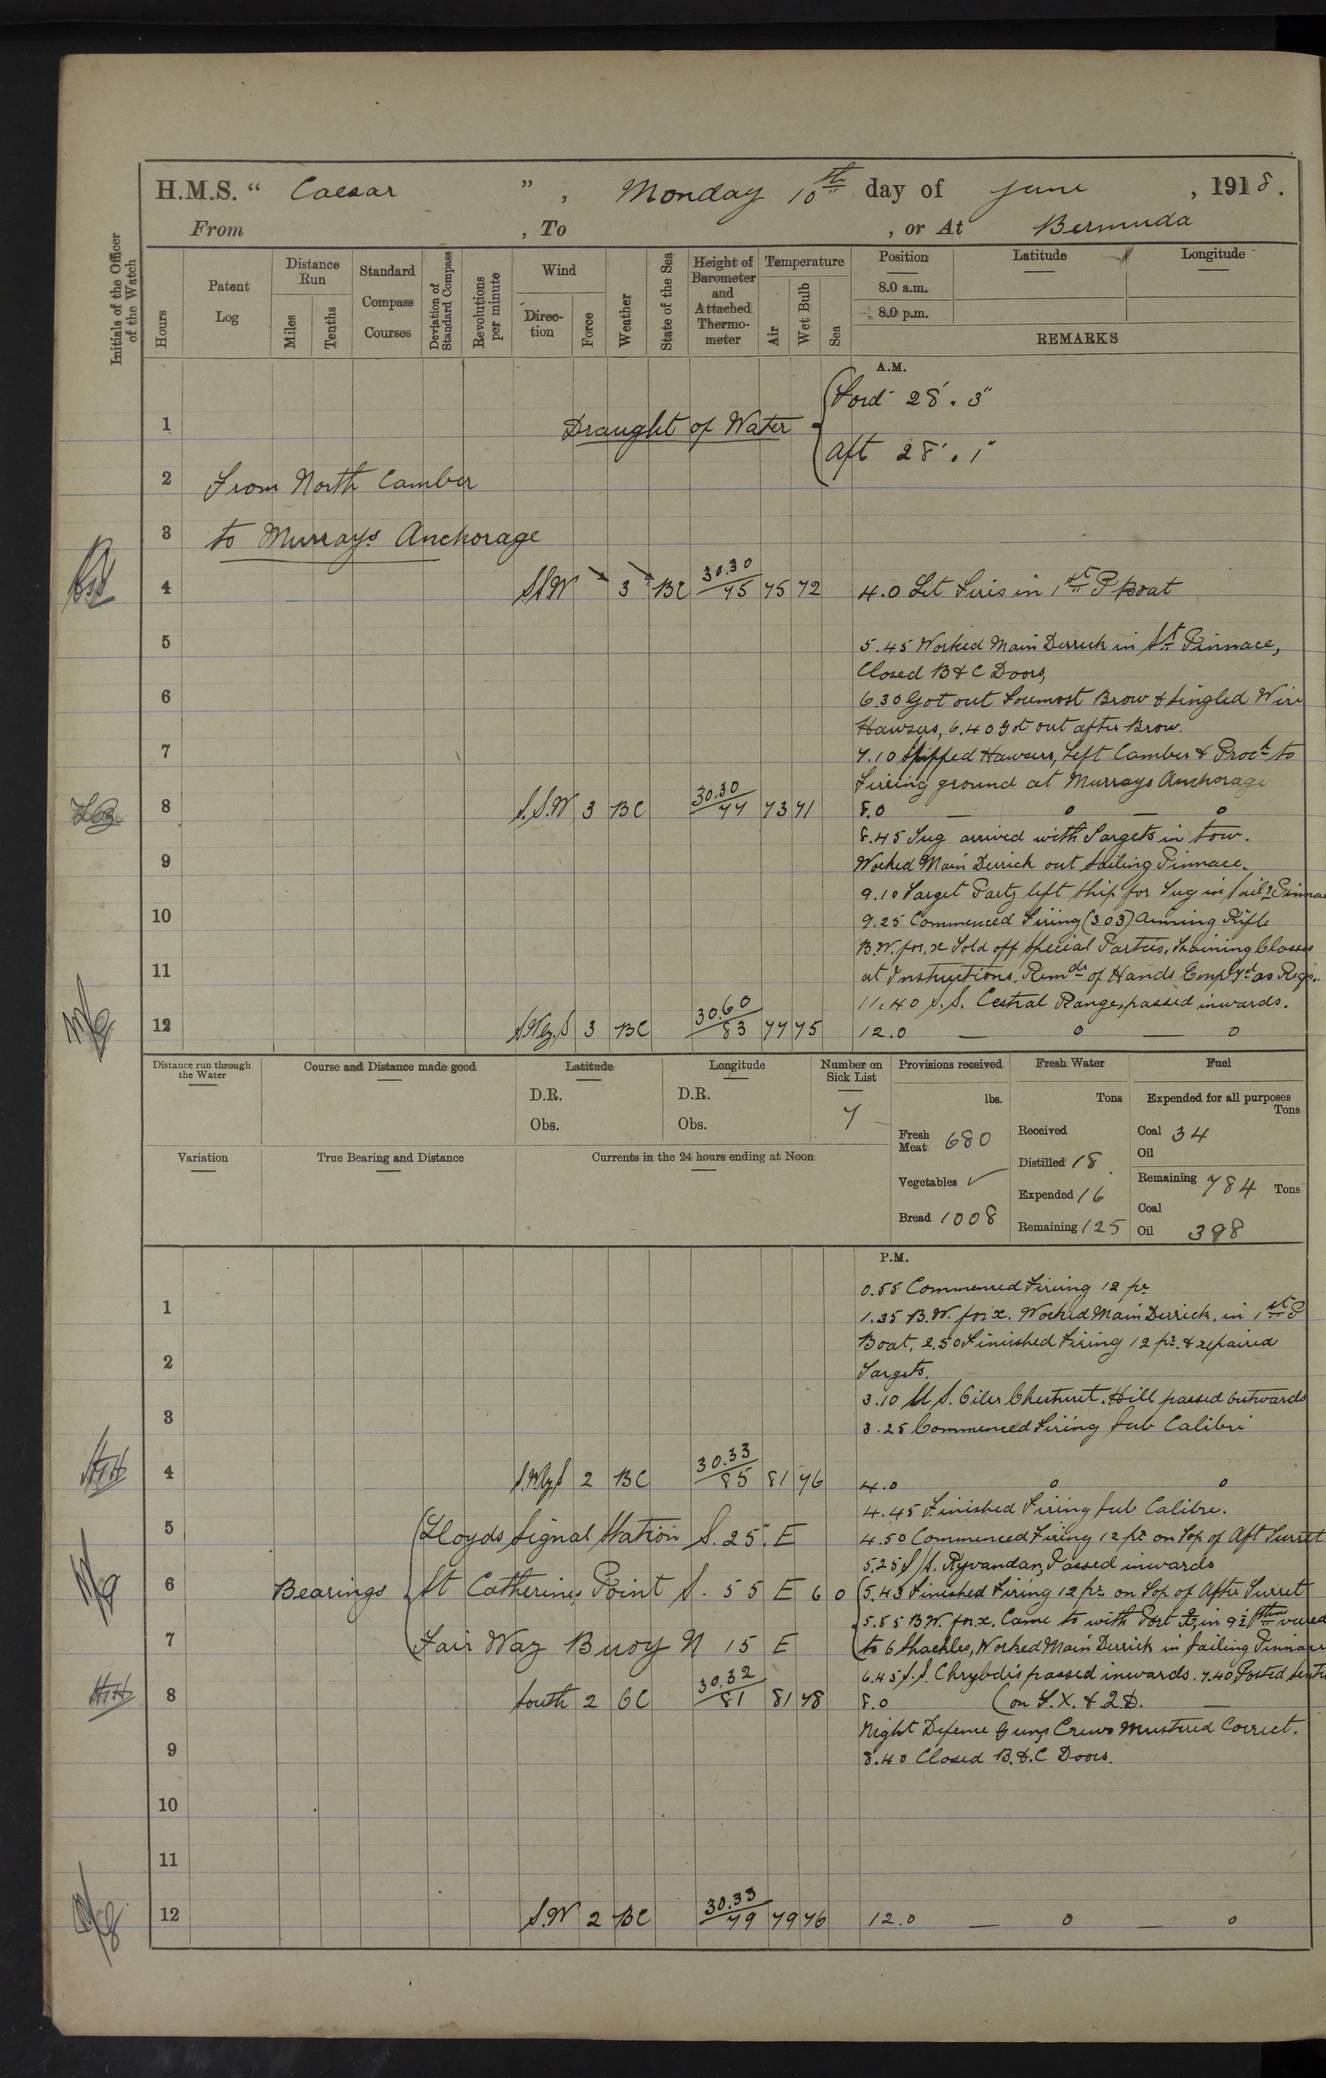 H.M.S. “ Caesar ” , Monday 10th day of June , 1918.
From , To , or At Bermuda
Initials of the Officer of the Watch
Hours
Patent Log
Distance Run
Miles
Tenths
Standard Compass Courses
Deviation of Standard Compass
Revolutions per minute
Wind
Direction
Force
Weather
State of the Sea
Height of Barometer and Attached Thermometer
Temperature
Air
Wet Bulb
Sea
Position
8.0 a.m.
8.0 p.m.
Latitude
Longitude
REMARKS
A.M.
Ford 28'. 3"
1 Draught of Water
Aft 28'. 1"
2 From North Camber
3 to Murrays Anchorage
4 SSW 3 BC 30.30 75 75 72 4.0 Lit Fires in 1st P Boat
5 5.45 Worked Main Derrick in St. Pinnace,
Closed B & C Doors,
6 6.30 Got out Foremost Brow & Singled Wire
Hawsers, 6.40 Got out after Brow.
7 7.10 Slipped Hawsers, Left Camber & Procd to
Firing ground at Murrays Anchorage
8 S.S.W 3 BC 30.30 77 73 71 8.0 — o — o
8.45 Tug arrived with Targets in tow.
9 Worked Main Derrick out Sailing Pinnace.
9.10 Target Party left Ship for Tug in Sailg Pinnace
10 9.25 Commenced Firing (303) Aiming Rifle
B.W. for. x Told off Special Parties, Training Classes
11 at Instructions. Remdr of Hands Employd as Reqs.
11.40 S.S. Cestral Range, passed inwards.
12 S.W by. S 3 BC 30.60 83 77 75 12.0 — o — o
Distance run through the Water
Course and Distance made good
Latitude
D.R.
Obs.
Longitude
D.R.
Obs.
Number on Sick List
7
Provisions received
lbs.
Fresh Meat 680
Vegetables ✓
Bread 1008
Fresh Water
Tons
Received
Distilled 18
Expended 16
Remaining 125
Fuel
Expended for all purposes
Tons
Coal 34
Oil
Remaining 784 Tons
Coal
Oil 398
Variation
True Bearing and Distance
Currents in the 24 hours ending at Noon
P.M.
0.55 Commenced Firing 12 pr
1 1.35 B.W. for x. Worked Main Derrick, in 1st P
Boat, 2.50 Finished Firing 12 pr. & repaired
2 Targets.
3.10 U S. Oiler Chestnut Hill passed outwards
3 3.25 Commenced Firing Sub Calibre
4 S.W by S 2 BC 30.33 85 81 76 4.0 o o
4.45 Finished Firing Sub Calibre.
5 Lloyds Signal Station S. 25. E 4.50 Commenced Firing 12 pr on Top of Aft Turret
5.25 S/S. Ryvandan, Passed inwards
6 Bearings St Catherines Point S. 55 E 60 5.43 Finished Firing 12 pr on Top of After Turret
5.55 B.W. for. x. Came to with Port in 9½ veered
7 Fair Way Buoy N 15 E to 6 Shackles, Worked Main Derrick in Sailing Pinnace
6.45 S.S. Chrybdis passed inwards. 7.40 Posted Sentries
8 South 2 BC 30.32 81 81 78 8.0 (on F.X. & Q.D. —
Night Defence Guns Crews Mustered Correct.
9 8.40 Closed B. & C Doors.
10
11
12 S.W 2 BC 30.33 79 79 76 12.0 — o — o